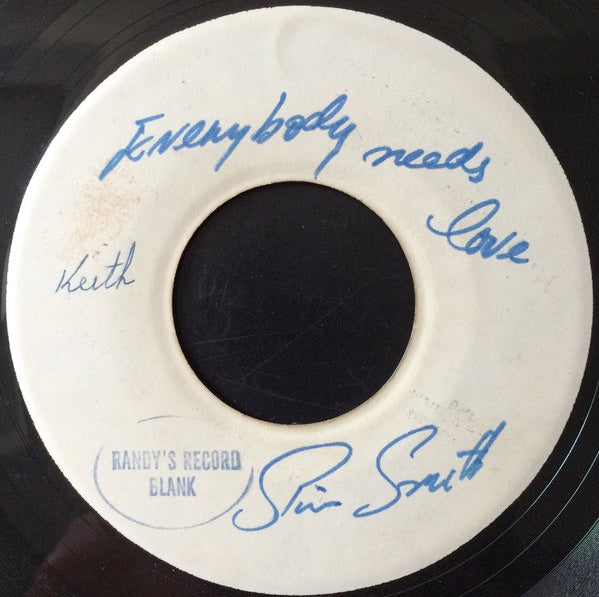 Everybody needs
love
Keith
RANDY'S RECORD
BLANK
Slim Smith